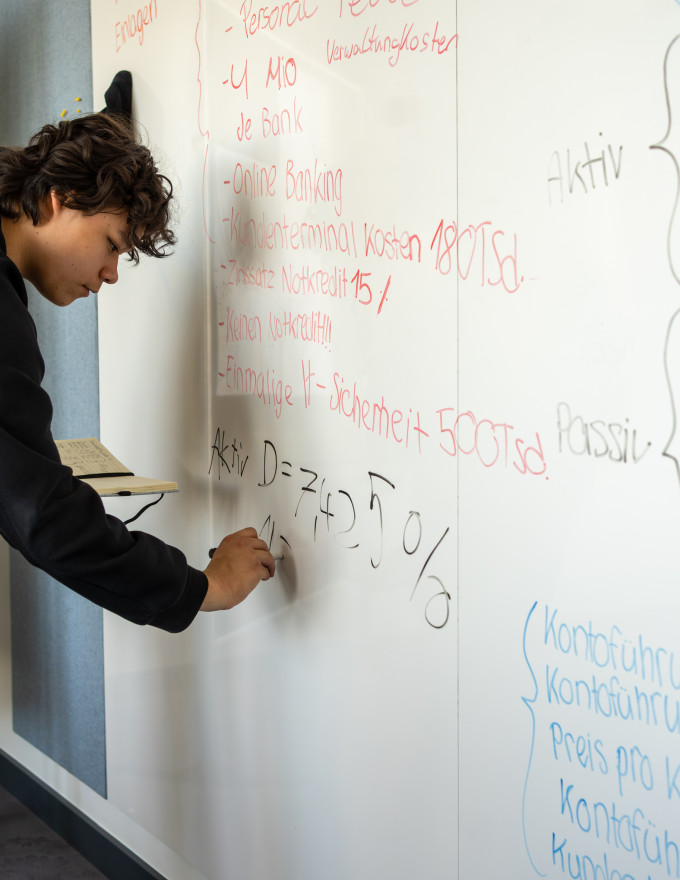 Einlagen
- Personal
Verwaltungkosten
- 4 Mio
Je Bank
- Online Banking
- Kundenterminal Kosten 180Tsd.
- Zinssatz Notkredit 15%
- Keinen Notkredit!!!
- Einmalige It-Sicherheit 500Tsd.
Aktiv D=7,425%
Aktiv
Passiv
Kontoführu
Kontoführu
Preis pro K
Kontofüh
Kunden